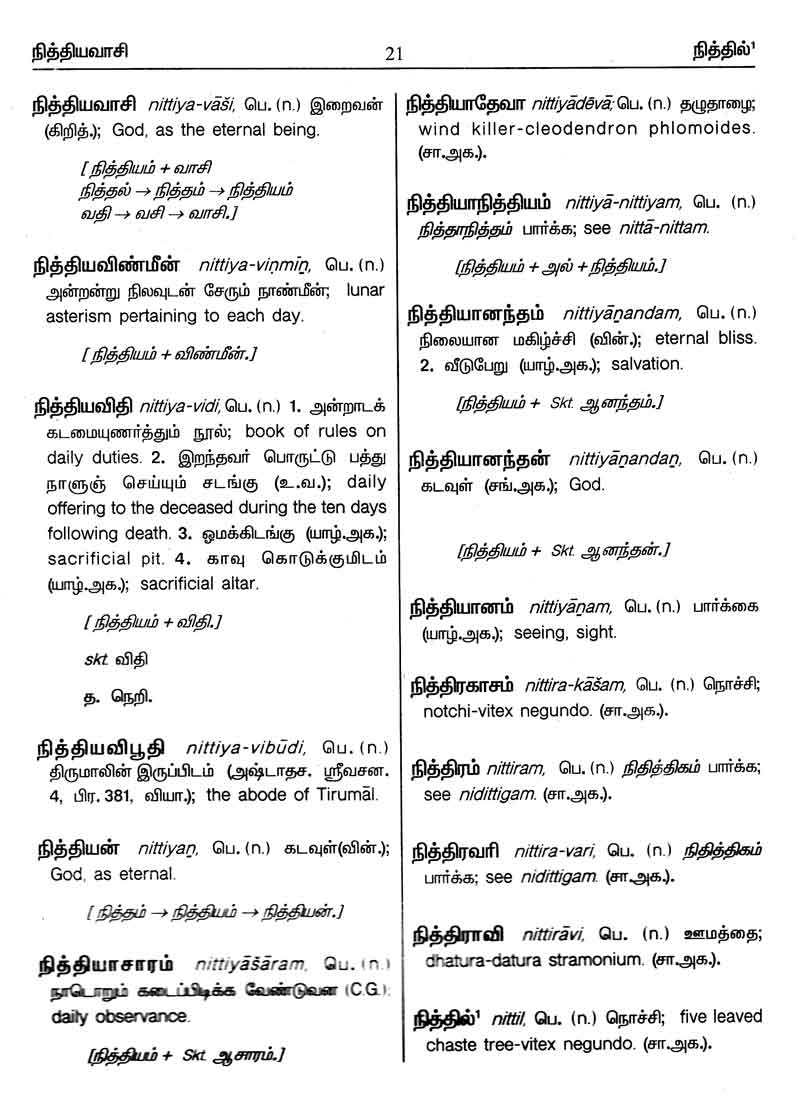 நித்தியவாசி 21 நித்தில்¹
நித்தியவாசி nittiya-vāši, பெ. (n.) இறைவன்
(கிறித்.); God, as the eternal being.
[ நித்தியம் + வாசி
நித்தல் → நித்தம் → நித்தியம்
வதி → வசி → வாசி.]
நித்தியவிண்மீன் nittiya-viṇmīṉ, பெ. (n.)
அன்றன்று நிலவுடன் சேரும் நாண்மீன்; lunar
asterism pertaining to each day.
[ நித்தியம் + விண்மீன்.]
நித்தியவிதி nittiya-vidi, பெ. (n.) 1. அன்றாடக்
கடமையுணர்த்தும் நூல்; book of rules on
daily duties. 2. இறந்தவர் பொருட்டு பத்து
நாளுஞ் செய்யும் சடங்கு (உ.வ.); daily
offering to the deceased during the ten days
following death. 3. ஓமக்கிடங்கு (யாழ்.அக.);
sacrificial pit. 4. காவு கொடுக்குமிடம்
(யாழ்.அக.); sacrificial altar.
[ நித்தியம் + விதி.]
skt. விதி
த. நெறி.
நித்தியவிபூதி nittiya-vibūdi, பெ. (n.)
திருமாலின் இருப்பிடம் (அஷ்டாதச. ஸ்ரீவசன.
4, பிர. 381, வியா.); the abode of Tirumāl.
நித்தியன் nittiyaṉ, பெ. (n.) கடவுள்(வின்.);
God, as eternal.
[ நித்தம் → நித்தியம் → நித்தியன்.]
நித்தியாசாரம் nittiyāšāram, பெ. (n.)
நாடொறும் கடைப்பிடிக்க வேண்டுவன (C.G.);
daily observance.
[நித்தியம் + Skt. ஆசாரம்.]
நித்தியாதேவா nittiyādēvā; பெ. (n.) தழுதாழை;
wind killer-cleodendron phlomoides.
(சா.அக.).
நித்தியாநித்தியம் nittiyā-nittiyam, பெ. (n.)
நித்தாநித்தம் பார்க்க; see nittā-nittam.
[நித்தியம் + அல் + நித்தியம்.]
நித்தியானந்தம் nittiyāṉandam, பெ. (n.)
நிலையான மகிழ்ச்சி (வின்.); eternal bliss.
2. வீடுபேறு (யாழ்.அக.); salvation.
[நித்தியம் + Skt. ஆனந்தம்.]
நித்தியானந்தன் nittiyāṉandaṉ, பெ. (n.)
கடவுள் (சங்.அக.); God.
[நித்தியம் + Skt. ஆனந்தன்.]
நித்தியானம் nittiyāṉam, பெ. (n.) பார்க்கை
(யாழ்.அக.); seeing, sight.
நித்திரகாசம் nittira-kāšam, பெ. (n.) நொச்சி;
notchi-vitex negundo. (சா.அக.).
நித்திரம் nittiram, பெ. (n.) நிதித்திகம் பார்க்க;
see nidittigam. (சா.அக.).
நித்திரவரி nittira-vari, பெ. (n.) நிதித்திகம்
பார்க்க; see nidittigam. (சா.அக.).
நித்திராவி nittirāvi, பெ. (n.) ஊமத்தை;
dhatura-datura stramonium. (சா.அக.).
நித்தில்¹ nittil, பெ. (n.) நொச்சி; five leaved
chaste tree-vitex negundo. (சா.அக.).